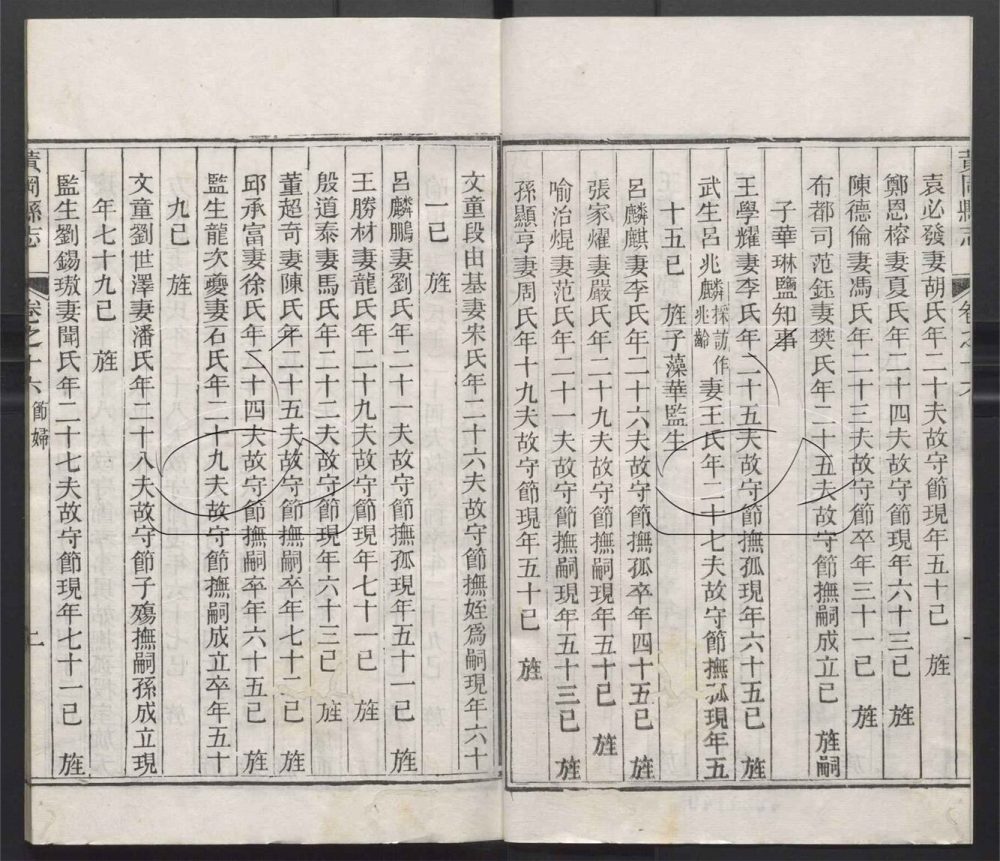 黃岡縣志
卷之十六
袁必發妻胡氏年二十夫故守節現年五十已　旌
鄭恩榕妻夏氏年二十四夫故守節現年六十三已　旌
陳德倫妻馮氏年二十三夫故守節卒年三十一已　旌
布都司范鈺妻樊氏年二十五夫故守節撫嗣成立已　旌嗣
子華琳鹽知事
王學耀妻李氏年二十五夫故守節撫孤現年六十五已　旌
武生呂兆麟採訪作兆齡妻王氏年二十七夫故守節撫孤現年五
十五已　旌子藻華監生
呂麟麒妻李氏年二十六夫故守節撫孤卒年四十五已　旌
張家燿妻嚴氏年二十九夫故守節撫嗣現年五十已　旌
喻治焜妻范氏年二十一夫故守節撫嗣現年五十三已　旌
孫顯亨妻周氏年十九夫故守節現年五十已　旌
文童段由基妻宋氏年二十六夫故守節撫姪爲嗣現年六十
一已　旌
呂麟鵬妻劉氏年二十一夫故守節撫孤現年五十一已　旌
王勝材妻龍氏年二十九夫故守節現年七十一已　旌
殷道泰妻馬氏年二十二夫故守節現年六十三已　旌
董超奇妻陳氏年二十五夫故守節撫嗣卒年七十二已　旌
邱承富妻徐氏年二十四夫故守節撫嗣卒年六十五已　旌
監生龍次夔妻石氏年二十九夫故守節撫嗣成立卒年五十
九已　旌
文童劉世澤妻潘氏年二十八夫故守節子殤撫嗣孫成立現
年七十九已　旌
監生劉錫璈妻聞氏年二十七夫故守節現年七十一已　旌
黃岡縣志
卷之十六　節婦